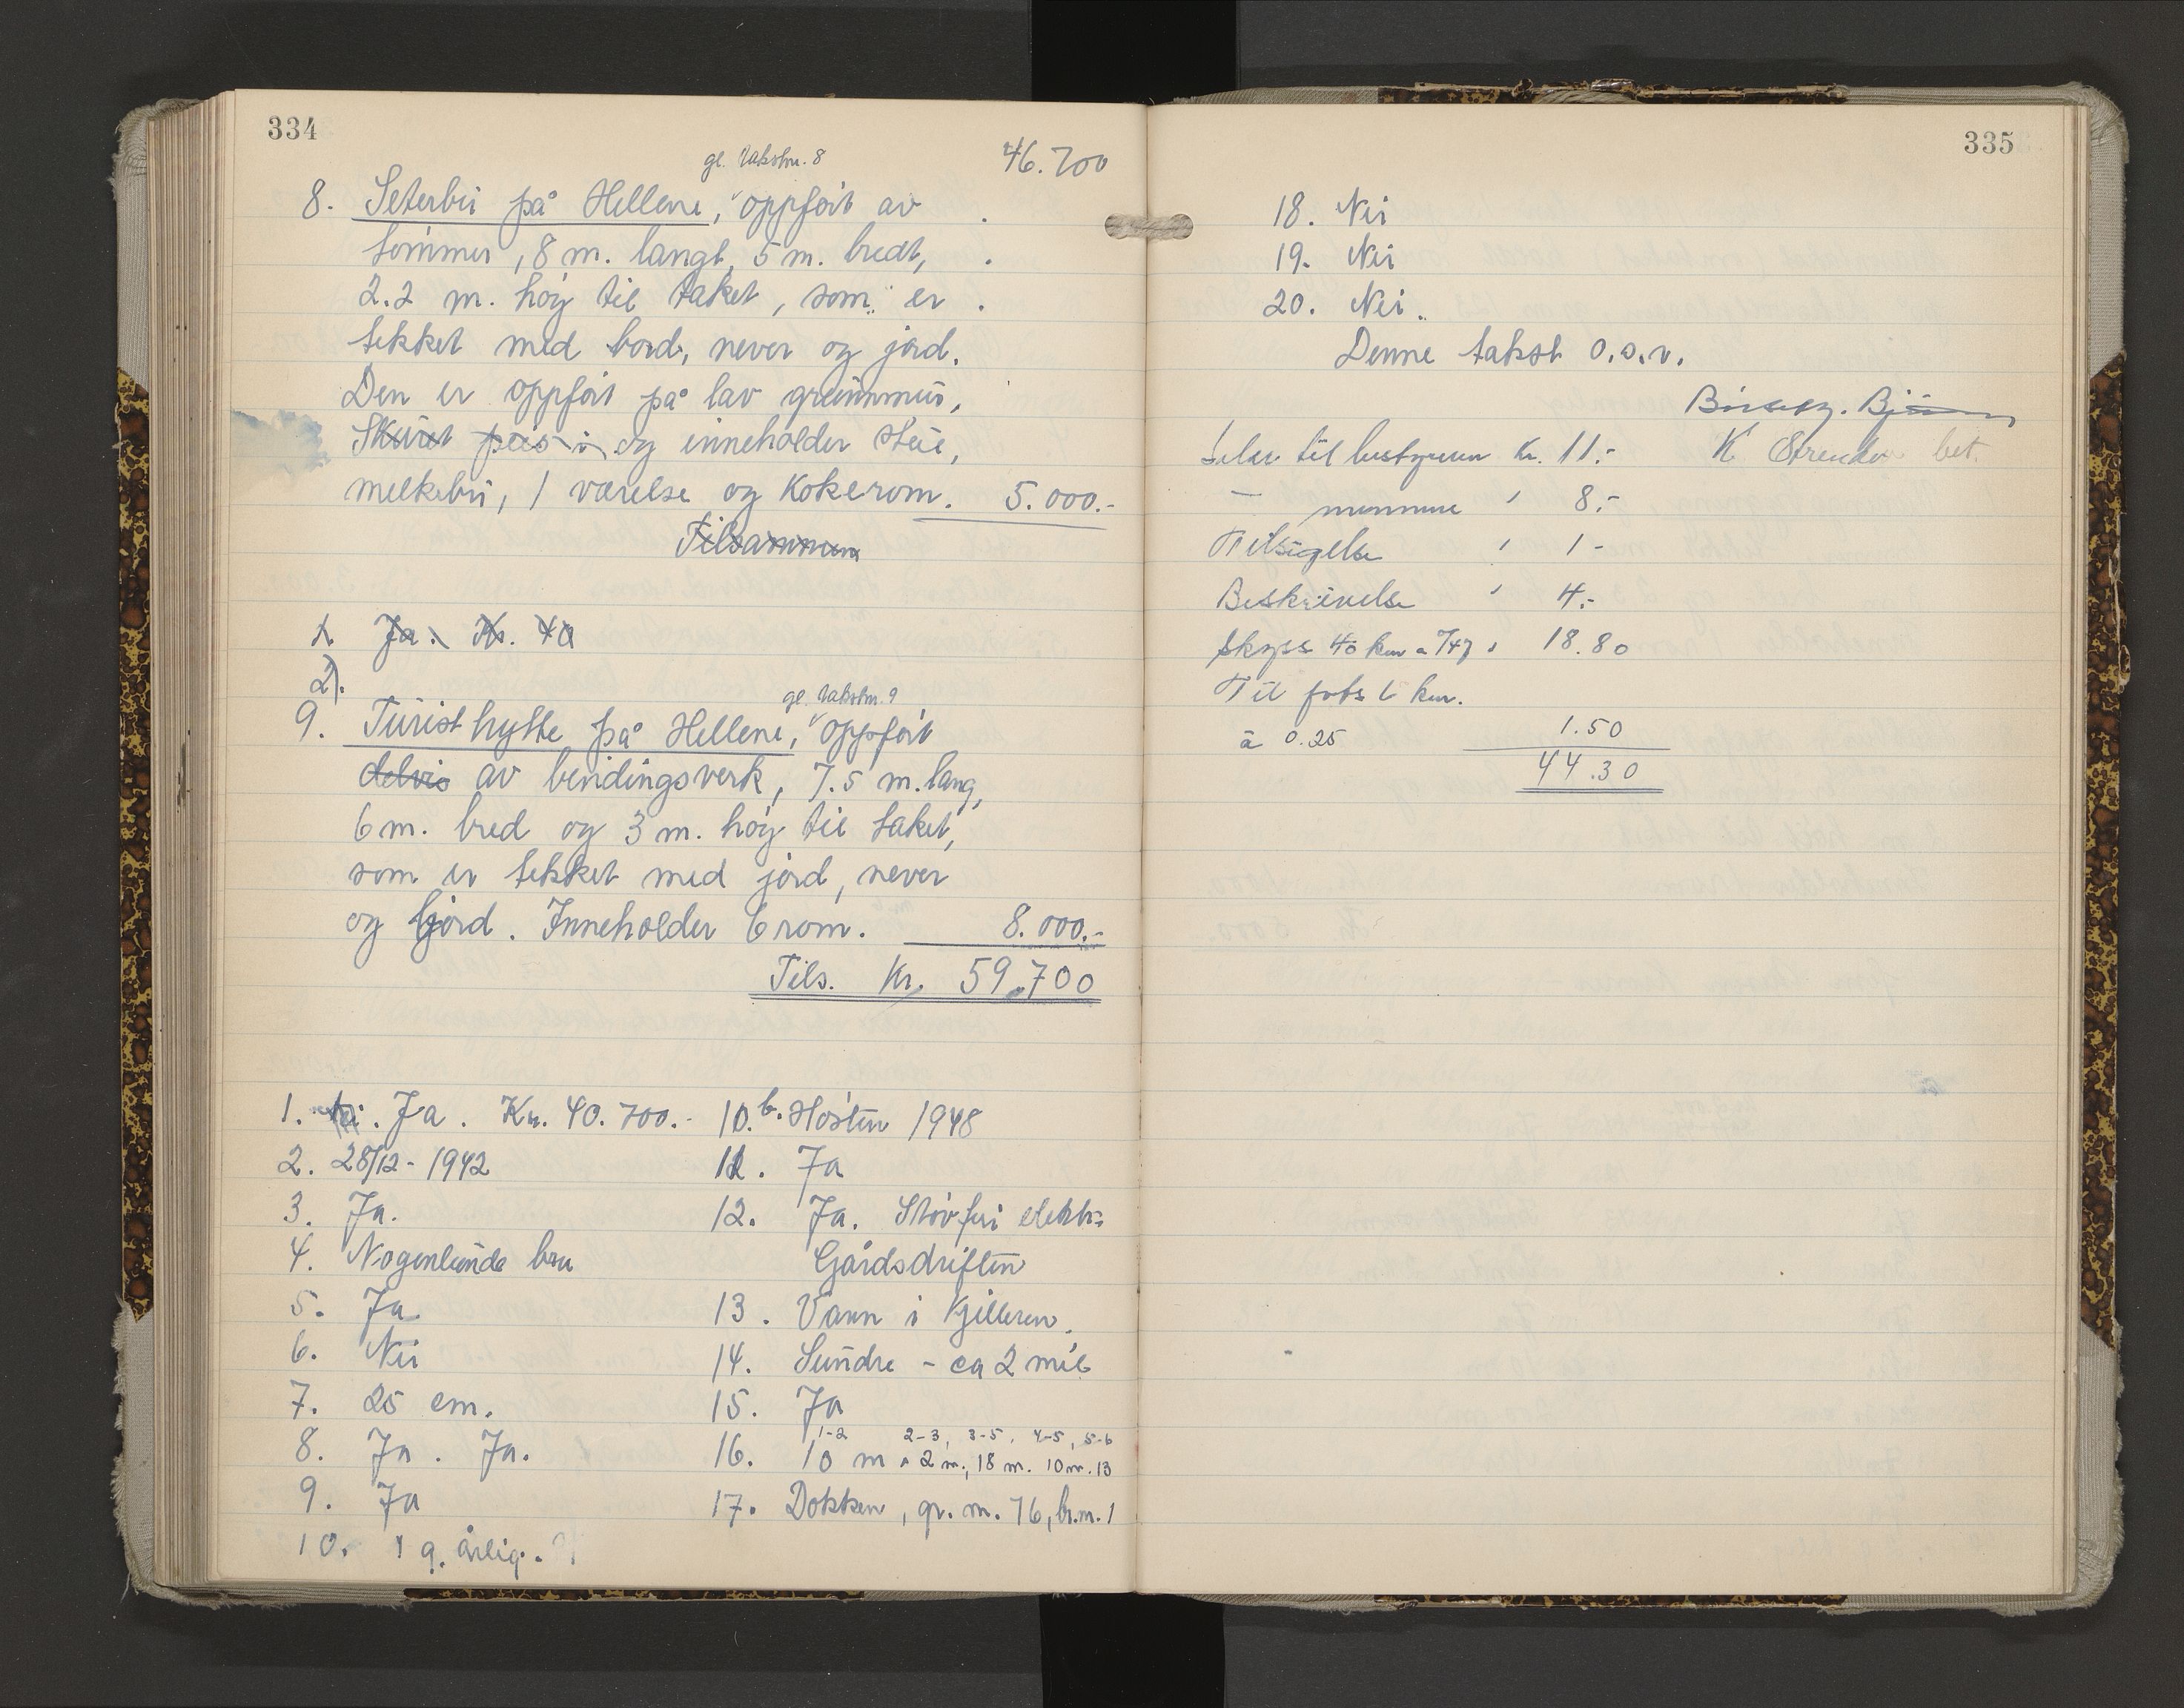 334
46.700
gl. takstnr. 8
8. Seterbu på Hellene, oppført av
tømmer, 8 m. langt, 5 m. bredt,
2.2 m. høg til taket, som er
tekket med bord, never og jord.
Den er oppført på lav grunnmur,
Skåret peis i og inneholder stue,
melkebu, 1 værelse og kokerom. 5.000.-
Tilsammen
1. Ja. Kr. 40
2).
gl. takstnr. 9
9. Turisthytte på Hellene, oppført
delvis av bindingsverk, 7.5 m. lang,
6 m. bred og 3 m. høg til taket,
som er tekket med jord, never
og bjord. Inneholder 6 rom. 8.000.-
Tils. Kr. 59.700
1. Ja. Kr. 40.700.-
2. 28/12 - 1942
3. Ja.
4. Nogenlunde bra
5. Ja
6. Nei
7. 25 cm.
8. Ja. Ja.
9. Ja
10. 1 g. årlig.
10.b. Høsten 1948
11. Ja
12. Ja. Støvfri elektr.
Gårdsdriften
13. Vann i kjelleren.
14. Sundre - ca 2 mil
15. Ja
1-2 2-3, 3-5, 4-5, 5-6
16. 10 m 2 m., 18 m. 10 m. 13
17. Dokken, gr. nr. 76, br. nr. 1
335
18. Nei
19. Nei
20. Nei.
Denne takst o.s.v.
K
bet.
til bestyreren Kr. 11.-
— mennene " 8.-
Tilsigelse " 1-
Beskrivelse " 4.-
Skyss 40 km a /47 " 18.80
Til fots 6 km.
à 0.25 1.50
44.30